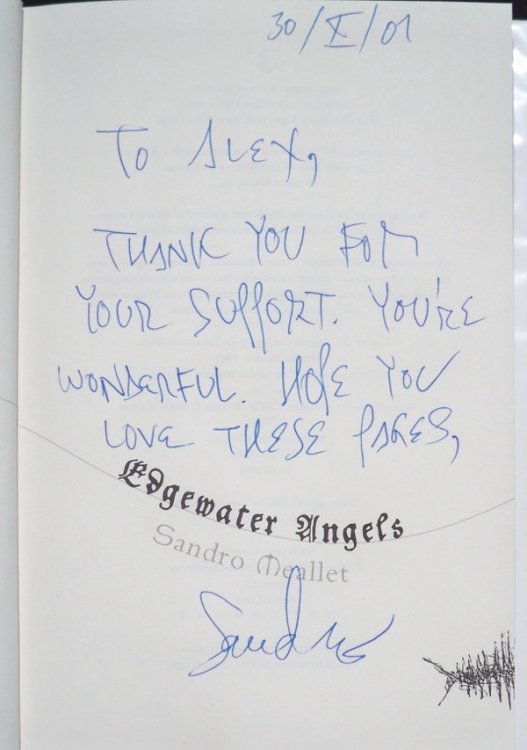 30/X/01
TO ALEX,
THANK YOU FOR
YOUR SUPPORT. YOU'RE
WONDERFUL. HOPE YOU
LOVE THESE PAGES,
Edgewater Angels
Sandro Meallet
Sandro